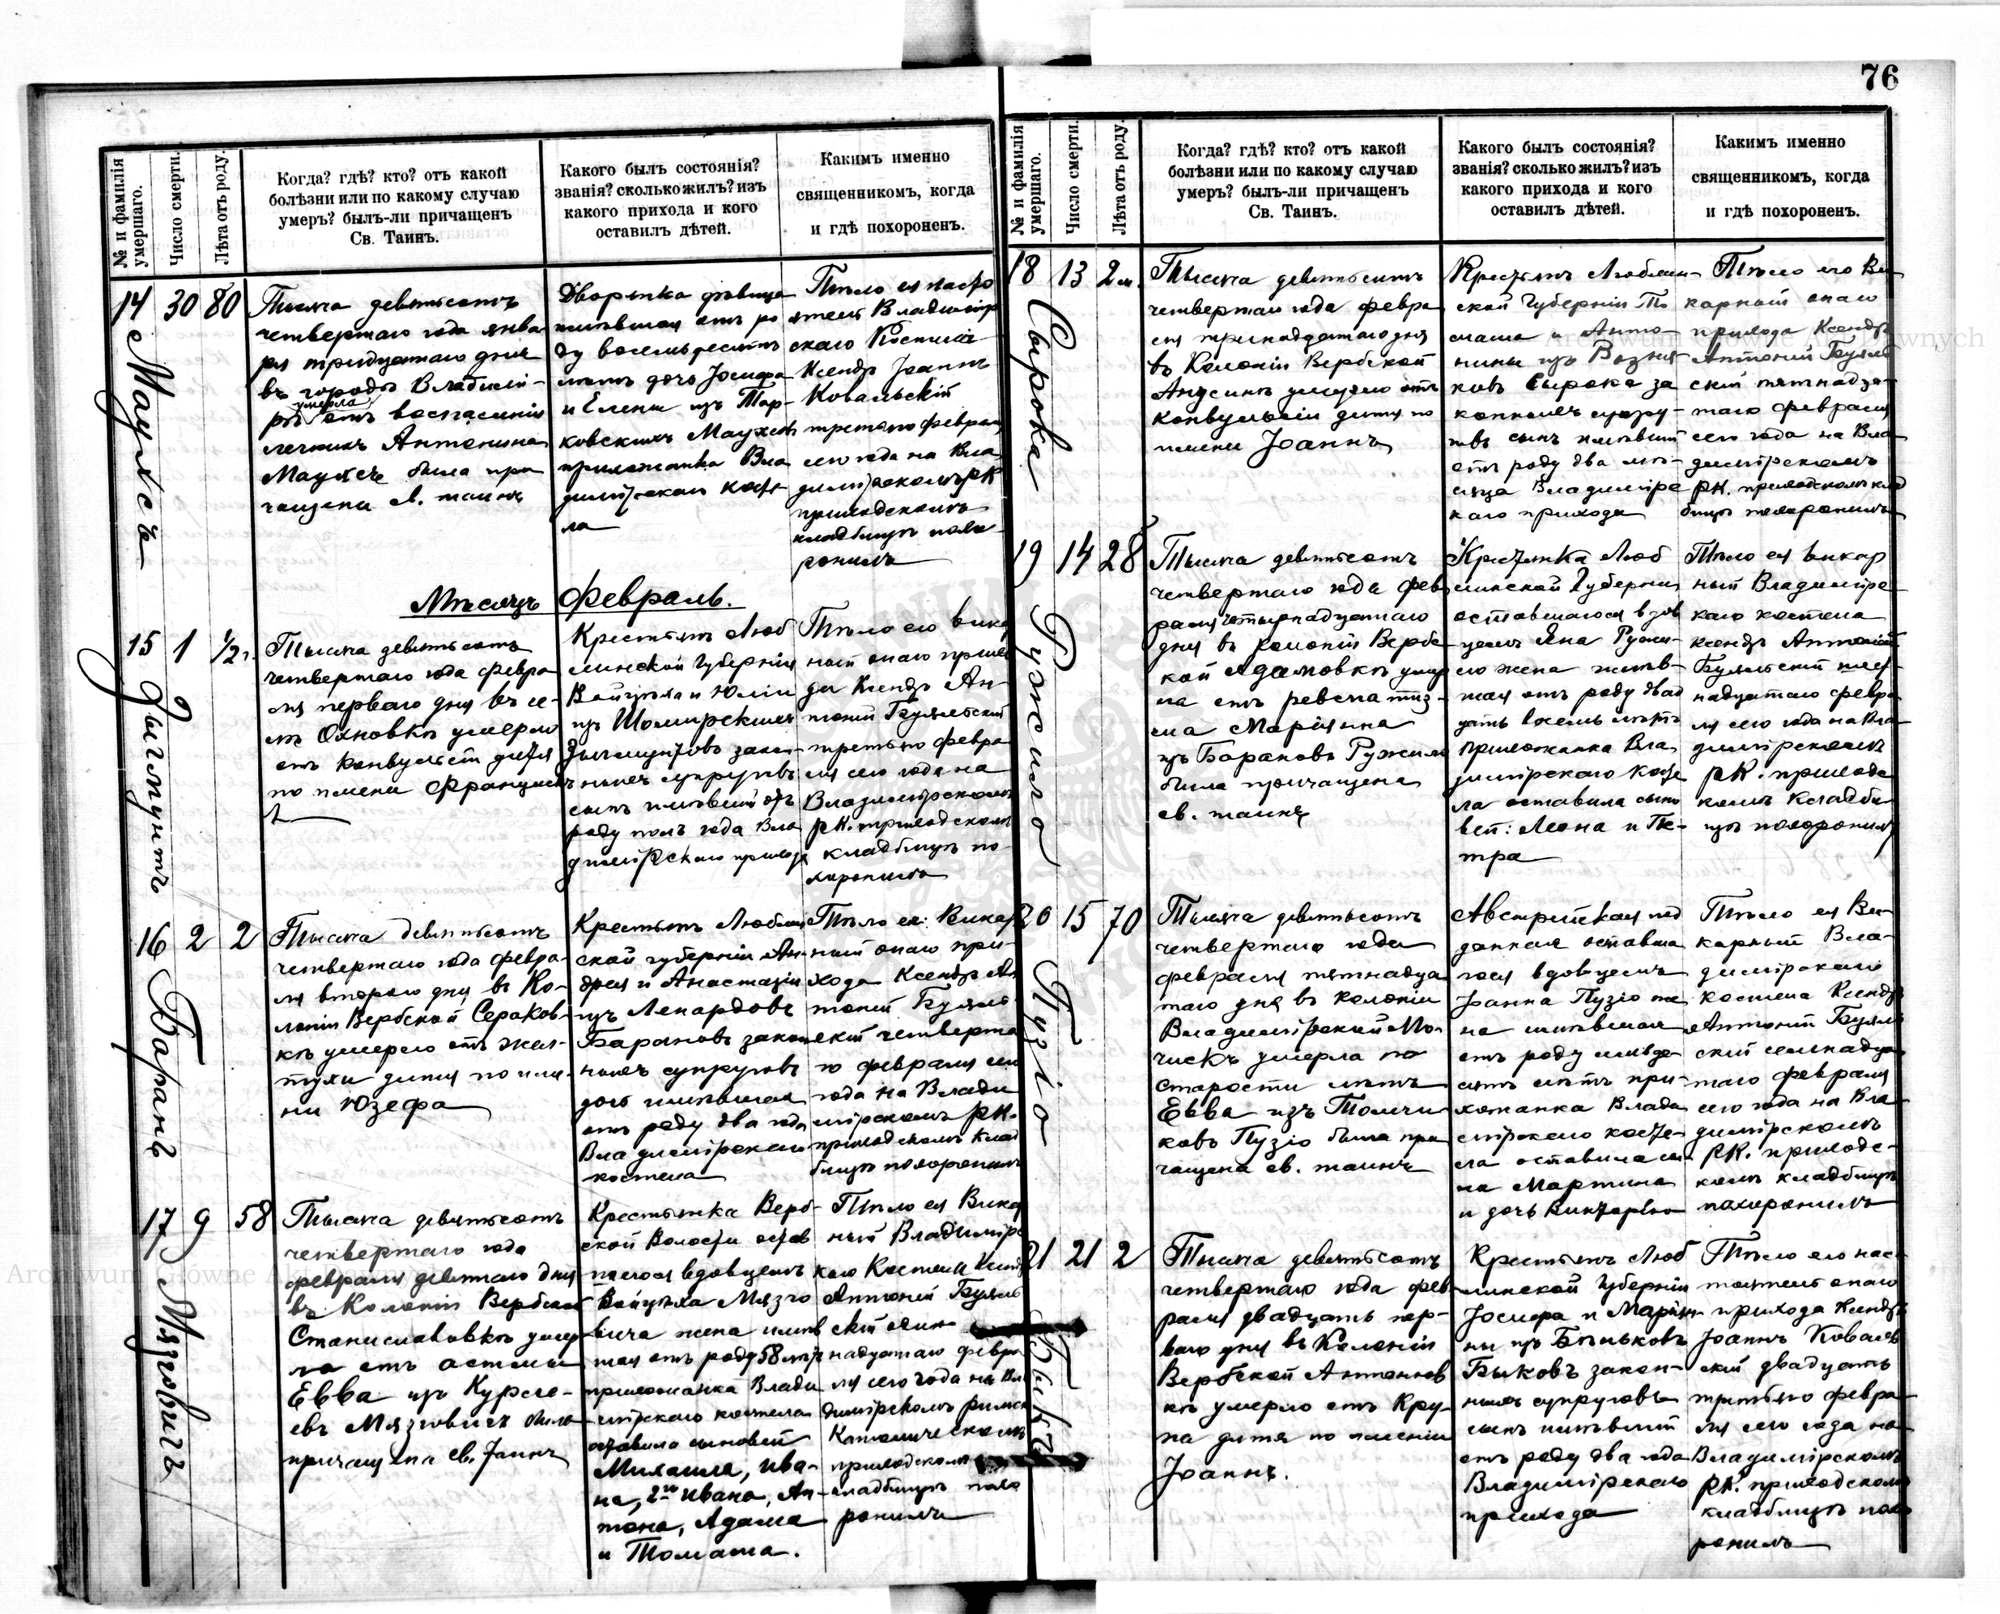 76
№ и фамилія умершаго.
Число смерти.
Лѣта отъ роду.
Когда? гдѣ? кто? отъ какой
болѣзни или по какому случаю
умеръ? былъ-ли причащенъ
Св. Таинъ.
Какого былъ состоянія?
званія? сколько жилъ? изъ
какого прихода и кого
оставилъ дѣтей.
Какимъ именно
священникомъ, когда
и гдѣ похороненъ.
14
30
80
Тысяча девятьсотъ
четвертаго года янва
ря тридцатаго дня
въ городѣ Владимі-
рѣ умерла отъ воспаленія
легкихъ Антонина
была при
чащена св. таинъ
Дворянка дѣвица
имѣвшая отъ ро
ду восемьдесятъ
лѣтъ дочь Іосифа
и Елены изъ Тар-
ковскихъ
прихожанка Вла
димірскаго косте
ла
Тѣло ея насто
ятель Владимір
скаго Костела
Ксендзъ Іоаннъ
Ковальскій
третьяго февраля
сего года на Вла
димірскомъ РК
приходскомъ
кладбищѣ похо
ронилъ
Мѣсяцъ Февраль.
15
1
½ г.
Дигмунтъ
Тысяча девятьсотъ
четвертаго года февра
ля перваго дня въ се-
лѣ Охновкѣ умерло
отъ конвульсій дитя
по имени Францишекъ
Крестьянъ Люб
линской Губерніи
Войцѣха и Юліи
изъ
закон-
ныхъ супруговъ
сынъ имѣвшій отъ
роду полъ года Вла
димірскаго прихода
Тѣло его викар
ный онаго прихо
да Ксендзъ Ан-
тоній Буяльскій
третьяго февра
ля сего года на
Владимірскомъ
РК. приходскомъ
кладбищѣ по-
хоронилъ
16
2
2
Баранъ
Тысяча девятьсотъ
четвертаго года февра-
ля второго дня въ Ко-
лоніи Вербской Сераков-
кѣ умерло отъ жел-
тухи дитя по име-
ни Юзефа
Крестьянъ Люблин
ской губерніи Ан-
дрея и Анастазіи
изъ Ленардовъ
Барановъ закон
ныхъ супруговъ
дочь имѣвшая
отъ роду два года
Владимірскаго
костела
Тѣло ея Викар
ный онаго при-
хода Ксендзъ Ан
тоній Буяль-
скій четверта
го февраля сего
года на Влади
мірскомъ РК.
приходскомъ клад
бищѣ похоронилъ
17
9
58
Мязговичъ
Тысяча девятьсотъ
четвертаго года
февраля девятаго дня
въ Колоніи Вербской
Станиславовкѣ умер
ла отъ астмы
Евва изъ
Мязговичъ была
причащена св. Таинъ
Крестьянка Верб-
ской Волости остав
шагося вдовцемъ
Войцѣха Мязго
вича жена имѣв
шая отъ роду 58 лѣтъ
прихожанка Влади
мірскаго костела
оставила сыновей
Михаила, Ива-
на, 2го Ивана, Ан-
тона, Адама
и Томаша.
Тѣло ея Викар
ный Владимірс
каго Костела Ксендзъ
Антоній Буяль
скій один-
надцатаго февра
ля сего года на Вла
димірскомъ римско
Католическомъ
приходскомъ
кладбищѣ похо
ронилъ
№ и фамилія умершаго.
Число смерти.
Лѣта отъ роду.
Когда? гдѣ? кто? отъ какой
болѣзни или по какому случаю
умеръ? былъ-ли причащенъ
Св. Таинъ.
Какого былъ состоянія?
званія? сколько жилъ? изъ
какого прихода и кого
оставилъ дѣтей.
Какимъ именно
священникомъ, когда
и гдѣ похороненъ.
18
13
2 м.
Сырока
Тысяча девятьсотъ
четвертаго года февра
ля тринадцатаго дня
въ Колоніи Вербской
умерло отъ
конвульсій дитя по
имени Іоаннъ
Крестьянъ Люблин-
ской Губерніи То
маша и Анто-
нины изъ Возня-
ковъ Сырока за
конныхъ супру-
говъ сынъ имѣвшій
отъ роду два мѣ-
сяца Владимірс
каго прихода
Тѣло его Ви
карный онаго
прихода Ксендзъ
Антоній Буяль
скій пятнадца-
таго февраля
сего года на Вла
димірскомъ
РК. приходскомъ клад
бищѣ похоронилъ
19
14
28
Ружило
Тысяча девятьсотъ
четвертаго года фев
раля четырнадцатаго
дня въ колоніи Вербс
кой Адамовкѣ умер
ла отъ ревматиз-
ма Маріянна
изъ Барановъ Ружило
была причащена
св. таинъ
Крестьянка Люб
линской Губерніи
оставшагося вдов
цемъ Яна Ружи-
ло жена имѣв-
шая отъ роду двад
цать восемь лѣтъ
прихожанка Вла
димірскаго косте
ла оставила сыно
вей: Леона и Пе-
тра
Тѣло ея викар
ный Владимірс
каго костела
ксендзъ Антоній
Буяльскій шест
надцатаго февра
ля сего года на Вла
димірскомъ
РК. приходс
комъ кладби
щѣ похоронилъ
20
15
70
Пузіо
Тысяча девятьсотъ
четвертаго года
февраля пятнадца
таго дня въ колоніи
Владимірской
умерла по
старости лѣтъ
Евва изъ
ковъ Пузіо была при
чащена св. таинъ
Австрійская под
данная оставша
гося вдовцемъ
Іоанна Пузіо же
на имѣвшая
отъ роду семьде
сятъ лѣтъ при-
хожанка Влади
мірскаго косте-
ла оставила сы
на Мартина
и дочь Викторію
Тѣло ея Ви-
карный Вла-
димірскаго
костела Ксендзъ
Антоній Буяль
скій семнадца
таго февраля
сего года на Вла
димірскомъ
РК. приходс-
комъ кладбищѣ
похоронилъ
21
21
2
Быкъ
Тысяча девятьсотъ
четвертаго года фев
раля двадцать пер-
ваго дня въ Колоніи
Вербской Антонов
кѣ умерло отъ Кру-
па дитя по имени
Іоаннъ.
Крестьянъ Люб
линской Губерніи
Іосифа и Маріян-
ны изъ
Быковъ закон-
ныхъ супруговъ
сынъ имѣвшій
отъ роду два года
Владимірскаго
прихода
Тѣло его нас-
тоятель онаго
прихода Ксендзъ
Іоаннъ Коваль
скій двадцать
третьяго февра
ля сего года на
Владимірскомъ
РК. приходскомъ
кладбищѣ похо
ронилъ